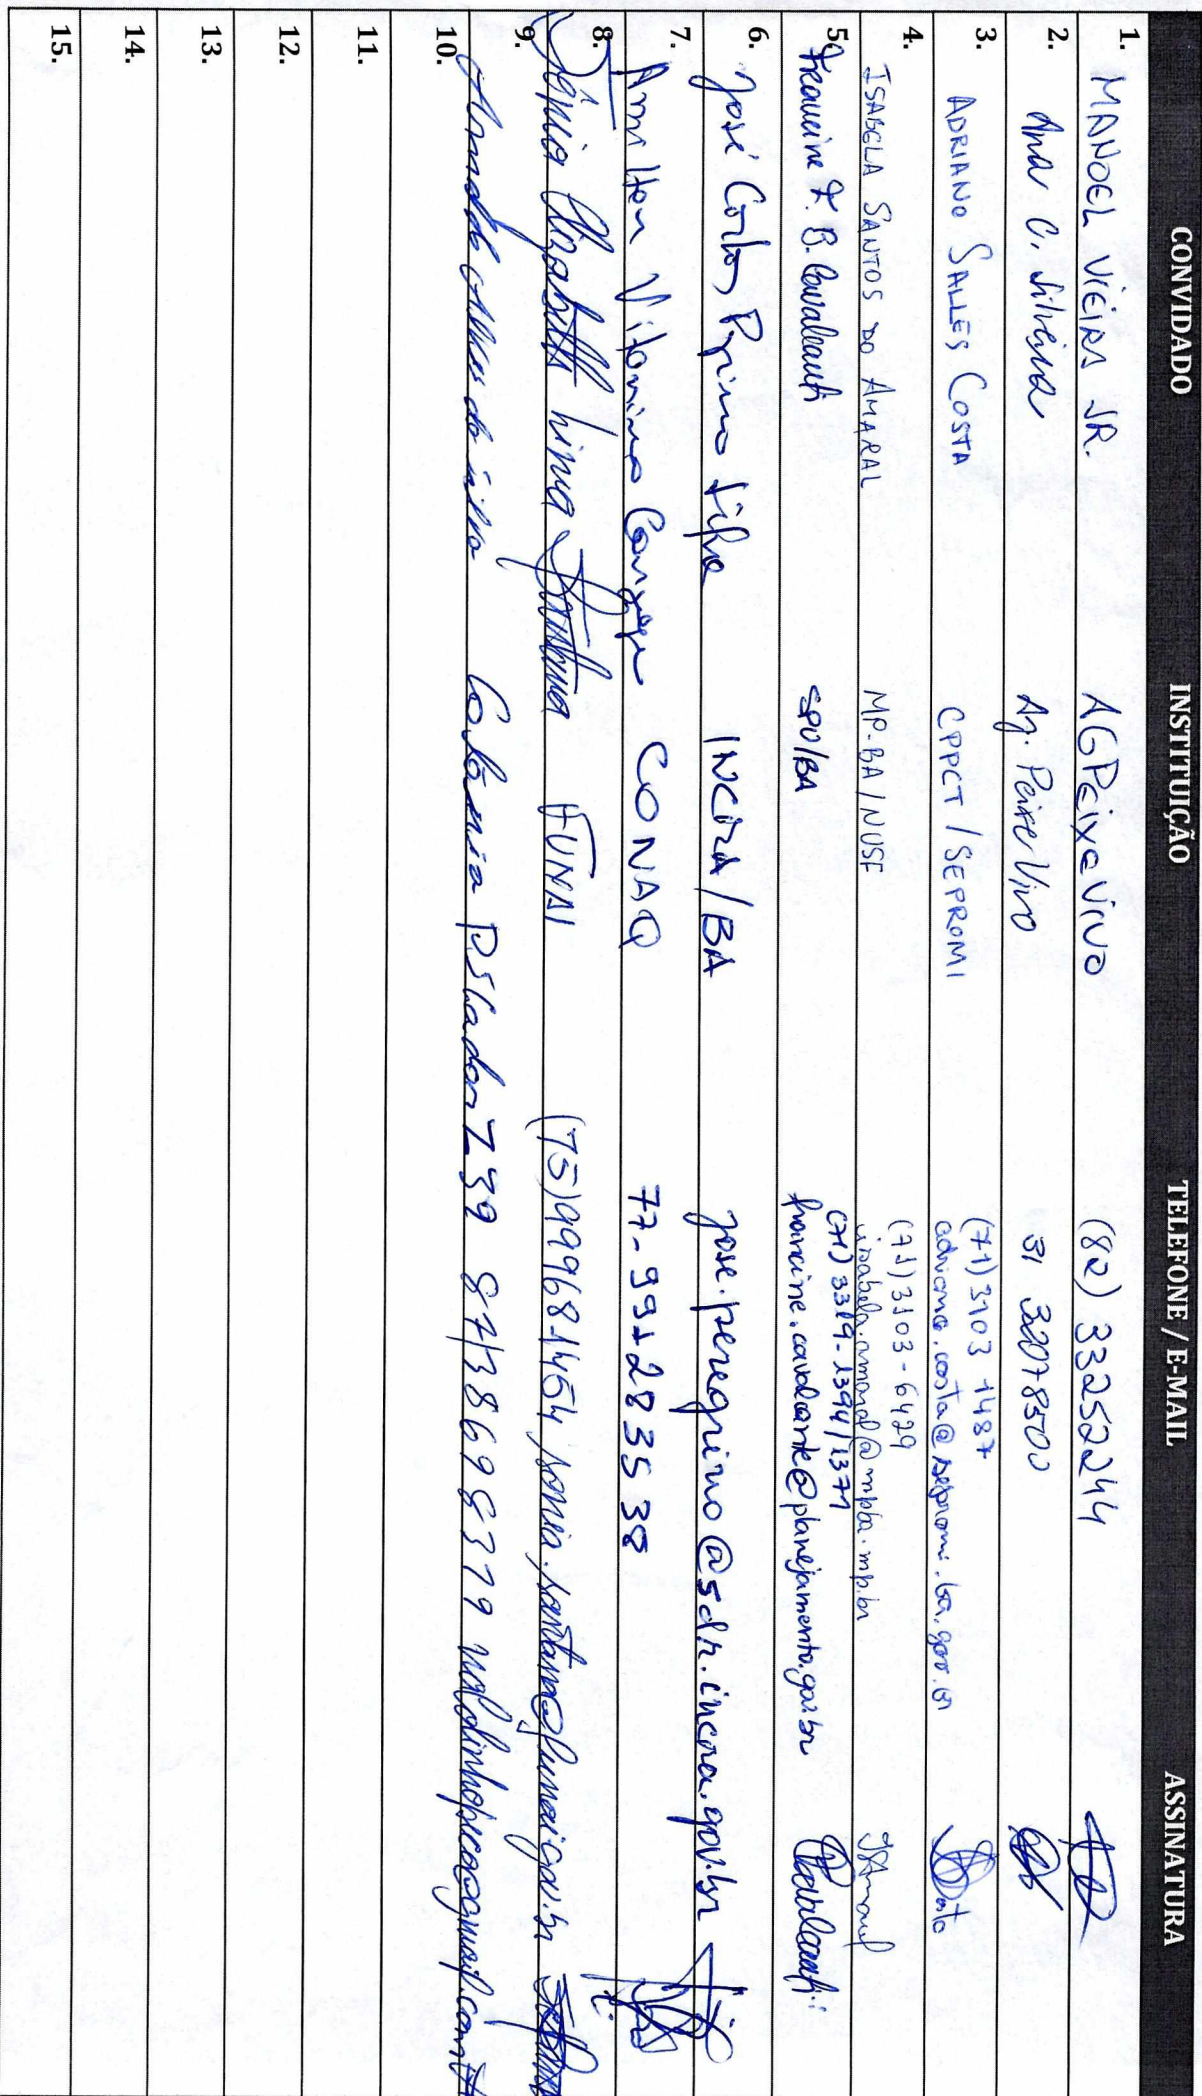 CONVIDADO INSTITUIÇÃO TELEFONE / E-MAIL ASSINATURA
1. MANOEL VIEIRA JR. AGPeixeVivo (82) 33252244
2. Ana C. Silveira Ag. Peixe Vivo 31 32078500
3. ADRIANO SALLES COSTA CPPCT / SEPROMI (71) 3103 1487
adriano.costa@sepromi.ba.gov.br
4. ISABELA SANTOS DO AMARAL MP-BA/NUSF (71) 3103-6429
isabela.amaral@mpba.mp.br
5. B. Cavalcanti SPU/BA (71) 3319-1394/1371
francine.cavalcante@planejamento.gov.br Cavalcanti
6. José Carlos INCRA/BA jose.peregrino@sdr.incra.gov.br
7. CONAQ 77-991283538
8. Sônia Elizabeth Lima Santana FUNAI (75)999681454 sonia.santana@funai.gov.br
9. Alves da Silva Colônia Z39
10.
11.
12.
13.
14.
15.